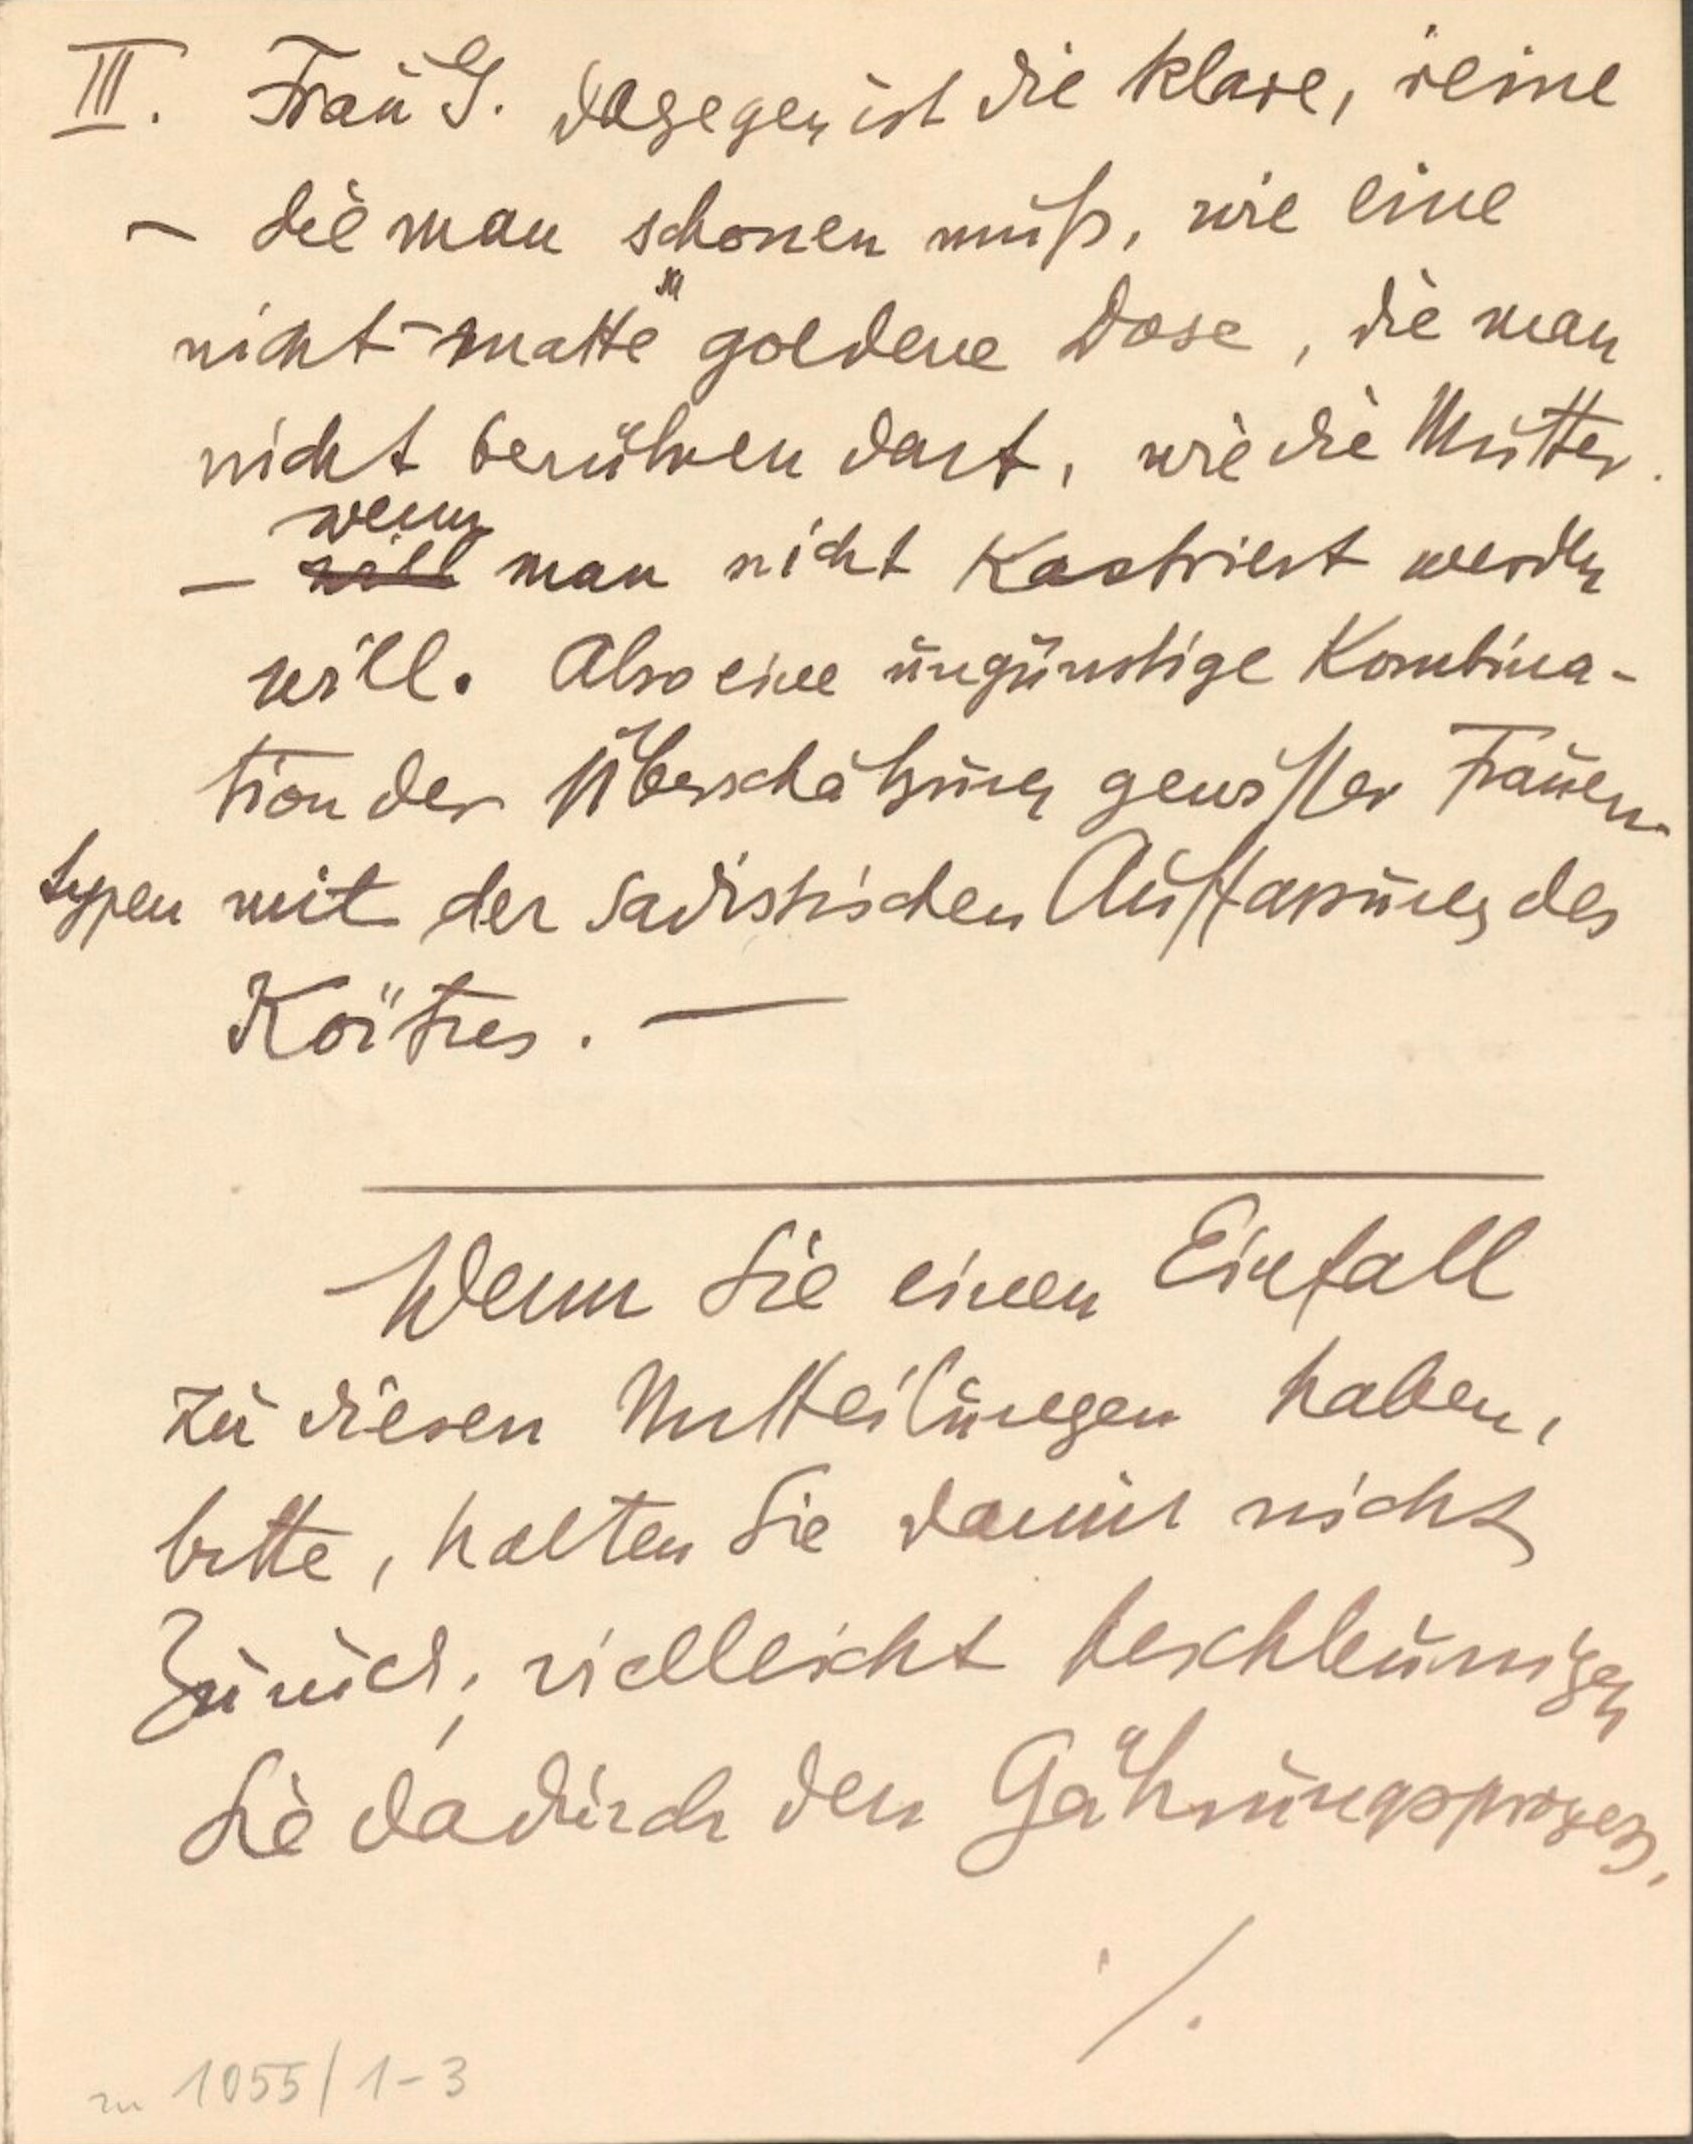 III. Frau G. dagegen ist die klare, reine
– die man schonen muß, wie eine
nicht-matte" goldene Dose, die man
nicht berühren darf, wie die Mutter.
wenn
– will man nicht kastriert werden
will. Also eine ungünstige Kombina-
tion der Überschätzung gewisser Frauen-
typen mit der sadistischen Auffassung des
Koïtus. —
Wenn Sie einen Einfall
zu diesen Mitteilungen haben,
bitte, halten Sie damit nicht
zurück; vielleicht beschleunigen
Sie dadurch den Gährungsprozess.
./.
zu 1055/1-3